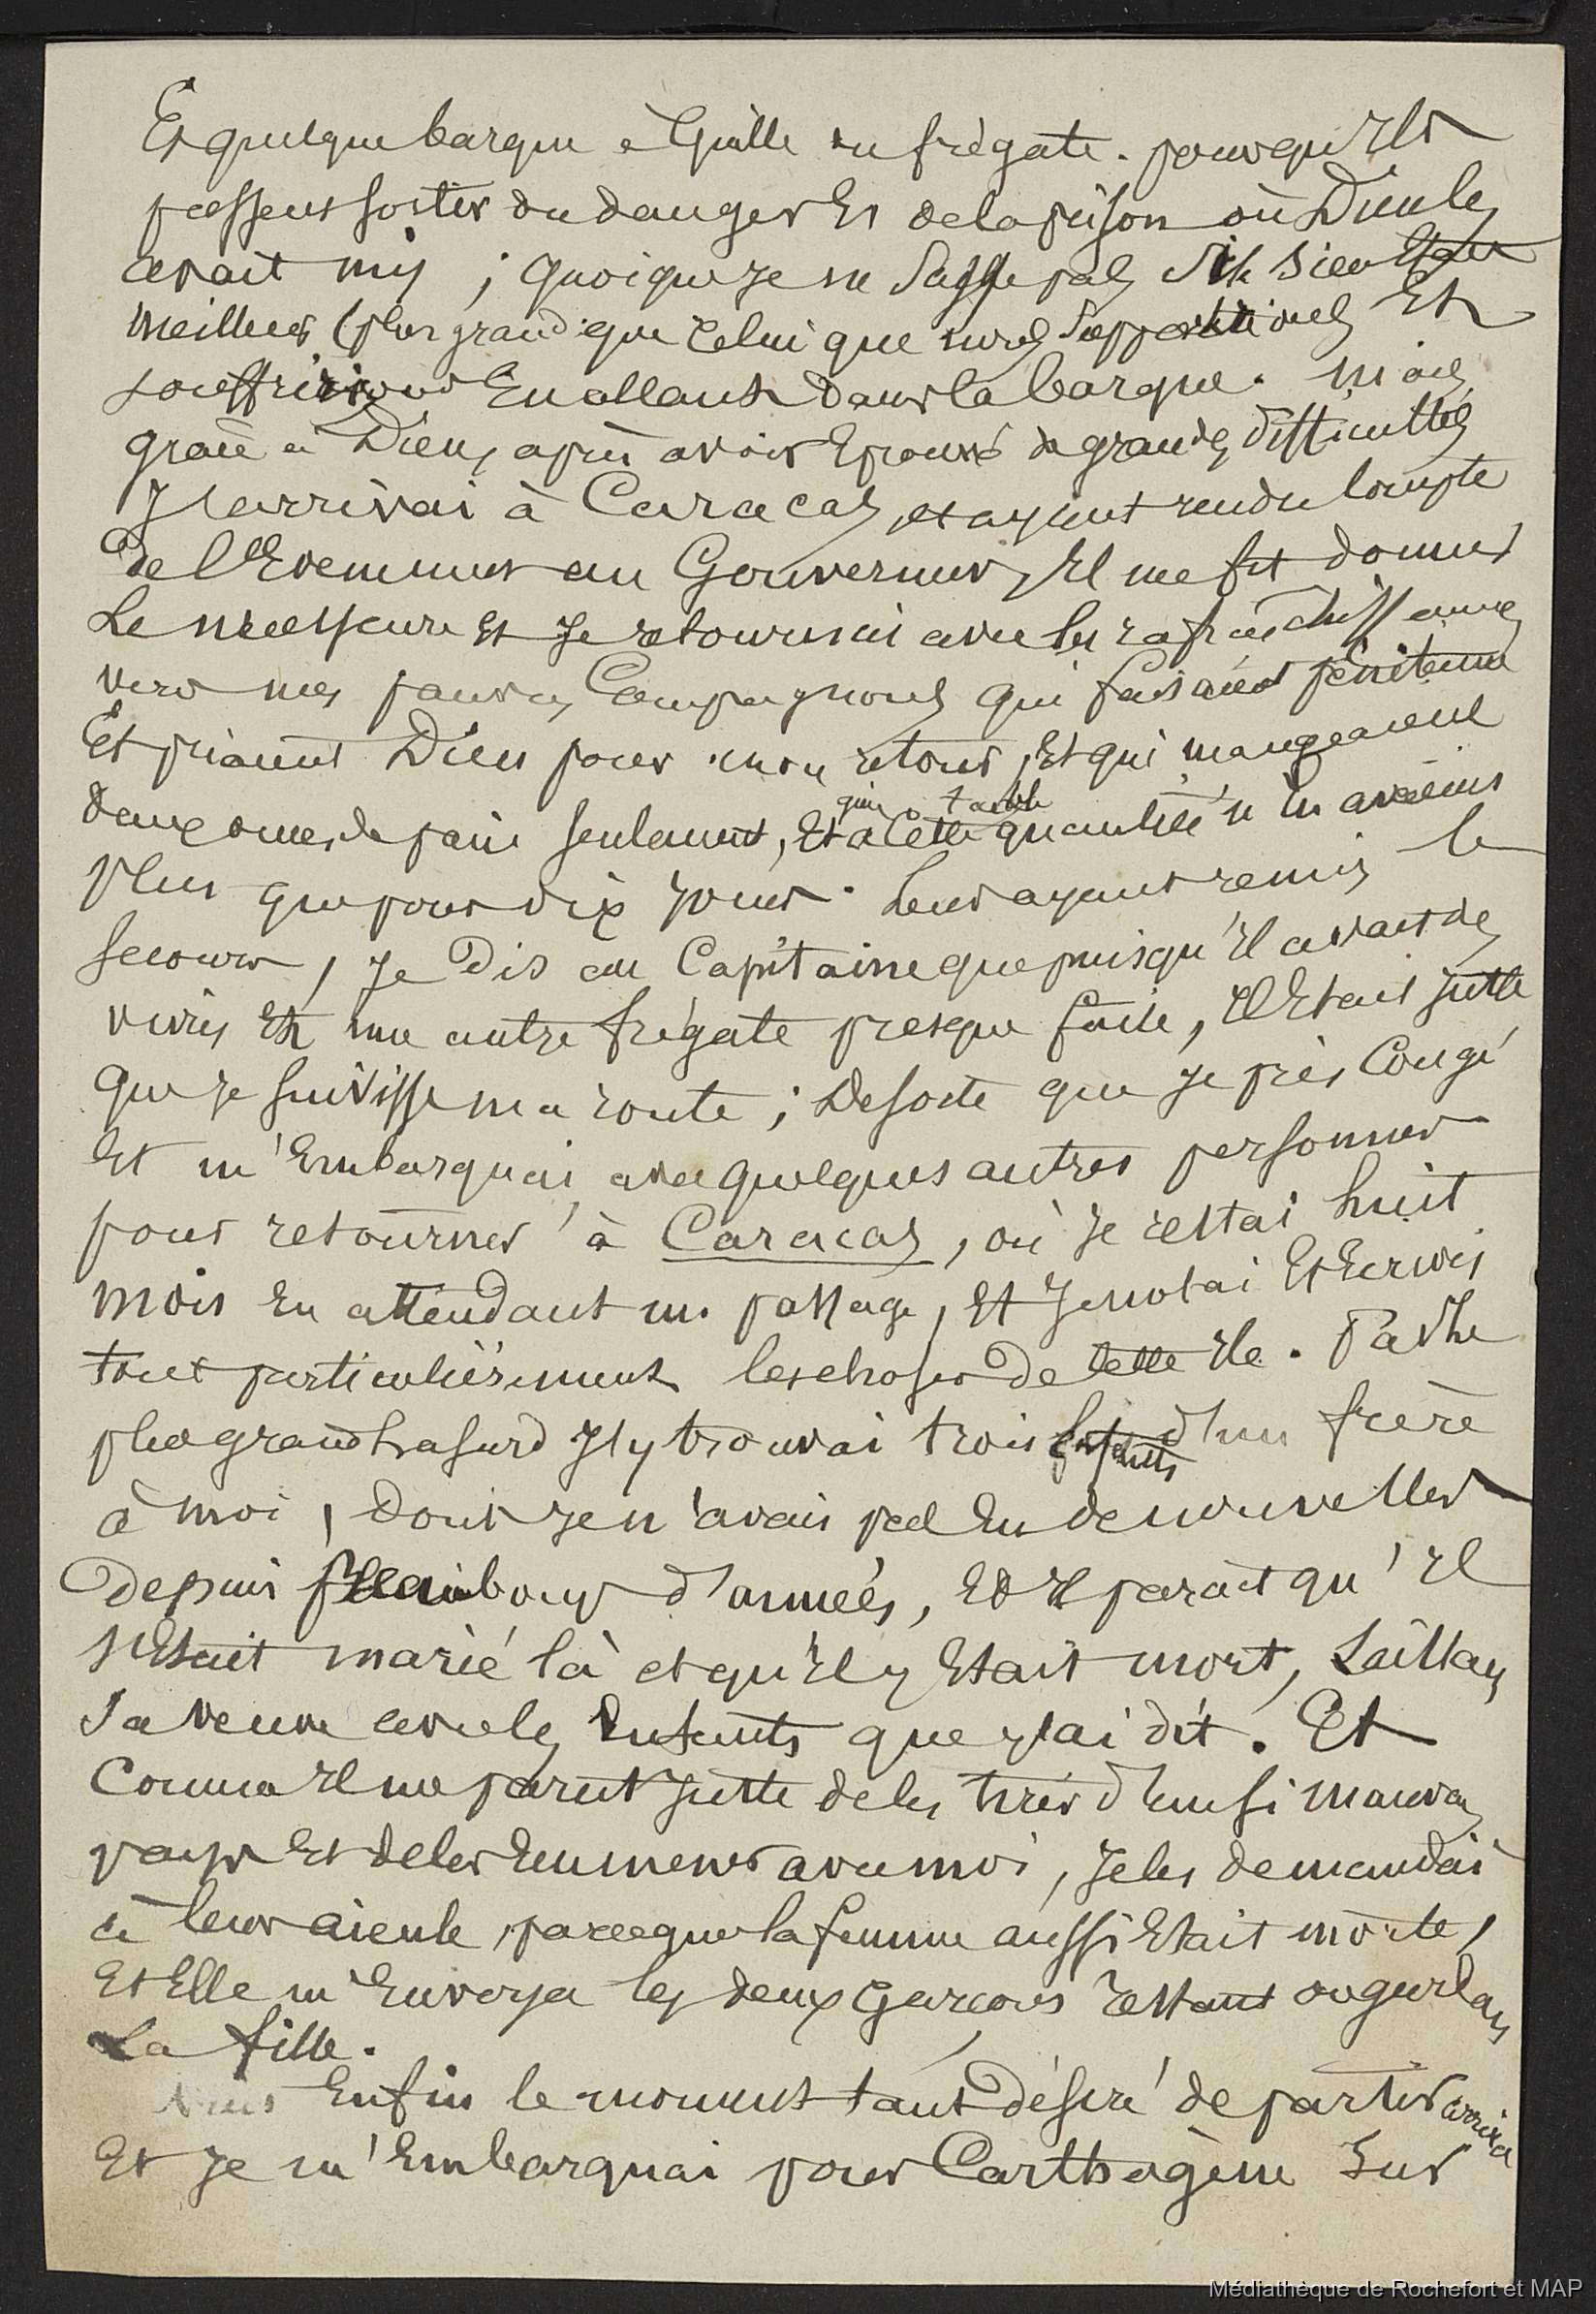 Et quelque barque à quille ou frégate. pour qu'Ils
pussent sortir du danger Et de la prison où Dieu les
avait mis ; quoique Je ne Susse pas S'ils
meilleur (plus grand que Celui que nous Supportions Et
souffririons En allant dans la barque. Mais
grâce à Dieu, après avoir Eprouvé de grandes difficultés
J'arrivai à Caracas, et ayant rendu Compte
de l'Evenement au Gouverneur, Il me fit donner
Le necessaire Et Je retournai avec les rafraichissements
vers mes pauvres Compagnons qui faisaient pénitence
Et priaient Dieu pour mon retour, Et qui mangeaient
deux onces de pain seulement, Et à Cette quantité n'en avaient
plus que pour dix Jours. Leur ayant remis le
secours, Je Dis au Capitaine que puisqu'Il avait des
vivres Et une autre frégate presque faite, Il Etait juste
que Je suivisse ma route ; De sorte que Je pris Congé
Et m'Embarquai avec quelques autres personnes
pour retourner à Caracas, où Je restai huit
mois En attendant un passage, Et Je notai Et Ecrivis
tout particulièrement les choses de Cette Ile. Par Le
plus grand hasard J'y trouvai trois Enfants d'un frère
à moi, Dont Je n'avais pas Eu de nouvelles
depuis d'années, Et Il parait qu'Il
s'Etait marié là et qu'Il y Etait mort, Laissant
Sa veuve avec les Enfants que J'ai dit. Et
Comme Il me parut Juste de les tirer d'un si mauvais
pays Et de les Emmener avec moi, Je les demandai
à leur aïeule, parceque la femme aussi Etait morte,
Et Elle m'Envoya les deux Garçons restant
La fille.
Enfin le moment tant Désiré de partir arriva
Et Je m'Embarquai pour Carthagène Sur
Médiathèque de Rochefort et MAP